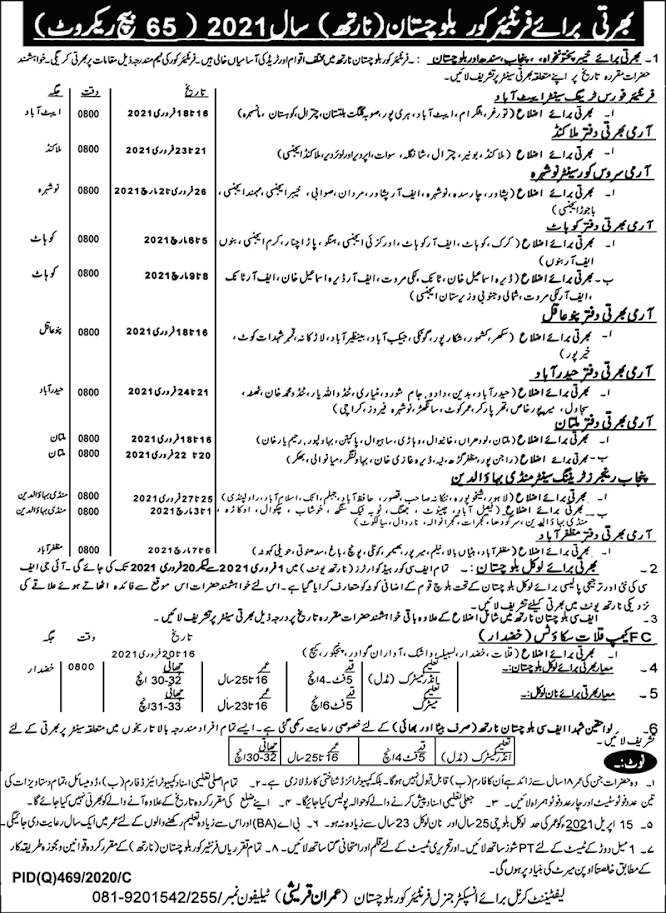 بھرتی برائے فرنٹیئر کور بلوچستان (نارتھ) سال 2021 (65 بیچ ریکروٹ)
1- بھرتی برائے خیبر پختونخواہ، پنجاب، سندھ اور بلوچستان:- فرنٹیئر کور بلوچستان نارتھ میں مختلف اقوام اور ٹریڈ کی آسامیاں خالی ہیں۔ فرنٹیئر کور کی ٹیم مندرجہ ذیل مقامات پر بھرتی کریگی۔ خواہشمند
حضرات مقررہ تاریخ پر اپنے متعلقہ بھرتی سینٹر پر تشریف لائیں۔
تاریخ وقت جگہ
فرنٹیئر فورس ٹریننگ سینٹر ایبٹ آباد
ا۔ بھرتی برائے اضلاع (تورغر، بٹگرام، ایبٹ آباد، ہری پور، صوبہ گلگت بلتستان، چترال، کوہستان، مانسہرہ) 16 تا 18 فروری 2021 0800 ایبٹ آباد
آرمی بھرتی دفتر ملاکنڈ
ا۔ بھرتی برائے اضلاع (ملاکنڈ، بونیر، چترال، شانگلہ، سوات، اپر دیر اور لوئر دیر، ملاکنڈ ایجنسی) 21 تا 23 فروری 2021 0800 ملاکنڈ
آرمی سروس کور سینٹر نوشہرہ
ا۔ بھرتی برائے اضلاع (پشاور، چارسدہ، نوشہرہ، ایف آر پشاور، مردان، صوابی، خیبر ایجنسی، مہمند ایجنسی، 26 فروری تا 2 مارچ 2021 0800 نوشہرہ
باجوڑ ایجنسی)
آرمی بھرتی دفتر کوہاٹ
ا۔ بھرتی برائے اضلاع (کرک، کوہاٹ، ایف آر کوہاٹ، اورکزئی ایجنسی، ہنگو، پاڑا چنار، کرم ایجنسی، بنوں 5 تا 6 مارچ 2021 0800 کوہاٹ
ایف آر بنوں)
ب۔ بھرتی برائے اضلاع (ڈیرہ اسماعیل خان، ٹانک، لکی مروت، ایف آر ڈیرہ اسماعیل خان، ایف آر ٹانک 8 تا 9 مارچ 2021 0800 کوہاٹ
، ایف آر لکی مروت، شمالی و جنوبی وزیرستان ایجنسی)
آرمی بھرتی دفتر پنوعاقل
ا۔ بھرتی برائے اضلاع (سکھر، کشمور، شکارپور، گھوٹکی، جیکب آباد، بینظیر آباد، لاڑکانہ، قمبر شہداد کوٹ، 16 تا 18 فروری 2021 0800 پنوعاقل
خیرپور)
آرمی بھرتی دفتر حیدرآباد
ا۔ بھرتی برائے اضلاع (حیدرآباد، بدین، دادو، جام شورو، مٹیاری، ٹنڈوالہ یار، ٹنڈو محمد خان، ٹھٹھہ، 21 تا 24 فروری 2021 0800 حیدرآباد
سجاول، میرپور خاص، تھرپارکر، عمرکوٹ، سانگھڑ، نوشہرہ فیروز، کراچی)
آرمی بھرتی دفتر ملتان
ا۔ بھرتی برائے اضلاع (ملتان، لودھراں، خانیوال، وہاڑی، ساہیوال، پاکپتن، بہاولپور، رحیم یار خان) 16 تا 18 فروری 2021 0800 ملتان
ب۔ بھرتی برائے اضلاع (راجن پور، مظفر گڑھ، لیہ، ڈیرہ غازی خان، بہاولنگر، میانوالی، بھکر) 20 تا 22 فروری 2021 0800 ملتان
پنجاب رینجرز ٹریننگ سینٹر منڈی بہاؤالدین
ا۔ بھرتی برائے اضلاع (لاہور، شیخوپورہ، ننکانہ صاحب، قصور، حافظ آباد، جہلم، اٹک، اسلام آباد، راولپنڈی) 25 تا 27 فروری 2021 0800 منڈی بہاؤالدین
ب۔ بھرتی برائے اضلاع (فیصل آباد، چنیوٹ، جھنگ، ٹوبہ ٹیک سنگھ، خوشاب، چکوال، اوکاڑہ، 1 تا 3 مارچ 2021 0800 منڈی بہاؤالدین
منڈی بہاؤالدین، سرگودھا، گجرات، گجرانوالہ، نارروال، سیالکوٹ)
آرمی بھرتی دفتر مظفرآباد
ا۔ بھرتی برائے اضلاع (مظفرآباد، ہٹیاں بالا، نیلم، میرپور، بھمبر، کوٹلی، پونچھ، باغ، سدھنوتی، حویلی کہوٹہ) 6 تا 7 مارچ 2021 0800 مظفرآباد
2- بھرتی برائے لوکل بلوچستان:- تمام ایف سی ہیڈکوارٹرز (نارتھ یونٹ) میں 1 فروری 2021 سے لیکر 20 فروری 2021 تک کی جائے گی۔ آئی جی ایف
سی کی نئی اور ترجیحی پالیسی برائے لوکل بلوچستان کے تحت بلوچ قوم کے اضافی کوٹہ کو متعارف کرایا گیا ہے۔ اس لئے خواہشمند حضرات اس موقع سے فائدہ اٹھاتے ہوئے علاقے کی
نزدیکی نارتھ یونٹ میں بھرتی کیلئے تشریف لائیں۔
3- ایف سی بلوچستان نارتھ میں شامل اضلاع کے علاوہ باقی خواہشمند حضرات مقررہ تاریخ پر درجہ ذیل بھرتی سینٹر پر تشریف لائیں۔
FC کیمپ قلات سکاؤٹس (خضدار) تاریخ وقت جگہ
ا۔ بھرتی برائے اضلاع (قلات، خضدار، لسبیلہ، واشک، آواران، گوادر، پنجگور، کیچ) 16 تا 20 فروری 2021 0800 خضدار
4- معیار بھرتی برائے لوکل بلوچستان:- تعلیم انڈر میٹرک (مڈل) قد 5 فٹ 4 انچ عمر 16 تا 25 سال چھاتی 30-32 انچ
5- معیار بھرتی برائے نان لوکل:- تعلیم میٹرک قد 5 فٹ 6 انچ عمر 16 تا 23 سال چھاتی 31-33 انچ
6- لواحقین شہدا ایف سی بلوچستان نارتھ (صرف بیٹا اور بھائی) کے لئے خصوصی رعایت رکھی گئی ہے۔ ایسے تمام افراد مندرجہ بالا تاریخوں میں متعلقہ سینٹر پر بھرتی کے لئے
تشریف لائیں۔
تعلیم انڈر میٹرک (مڈل) قد 5 فٹ 4 انچ عمر 16 تا 25 سال چھاتی 30-32 انچ
نوٹ:-
۱۔ وہ حضرات جن کی عمر ۱۸ سال سے زائد ہے اُن کا فارم (ب) قابل قبول نہیں ہوگا۔ بلکہ کمپیوٹرائزڈ شناختی کارڈ لازمی ہے۔ ۲۔ تمام اصلی تعلیمی اسناد کمپیوٹرائیزڈ فارم (ب)، ڈومیسائل، تمام دستاویزات کی
تین عدد فوٹوسٹیٹ اور چار عدد فوٹو ہمراہ لائیں۔ ۳۔ جعلی تعلیمی اسناد پیش کرنے والے کو حوالہ پولیس کیا جائیگا۔ ۴۔ اپنے ضلع کی مقرر کردہ تاریخ کے علاوہ آنے والے کو بھرتی نہیں کیا جائے گا۔
۵۔ 15 اپریل 2021 کو عمر کی حد لوکل بلوچی 25 سال اور نان لوکل 23 سال سے زیادہ نہ ہو۔ ۶۔ بی اے (BA) اور اس سے زیادہ تعلیم رکھنے والوں کے لئے عمر میں ایک سال رعایت دی جائیگی۔
۷۔ 1 میل دوڑ کے ٹیسٹ کے لئے PT شوز ساتھ لائیں۔ اور تحریری ٹیسٹ کے لئے قلم اور امتحانی گتا ساتھ لائیں۔ ۸۔ تمام تقرریاں فرنٹیئر کور بلوچستان (نارتھ) کے مقرر کردہ قوانین و مجوزہ طریقہ کار
کے مطابق خالصتاً اوپن میرٹ کی بنیاد پر ہوں گی۔
PID(Q)469/2020/C
لیفٹیننٹ کرنل برائے انسپکٹر جنرل فرنٹیئر کور بلوچستان (عمران قریشی) ٹیلیفون نمبر/255/081-9201542